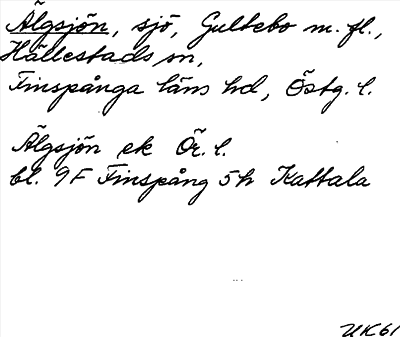 Älgsjön, sjö, Gultebo m. fl.,
Hällestads sn,
Finspånga läns hd, Östg. l.
Älgsjön ek Ör. l.
bl. 9F Finspång 5h Kattala
UK61